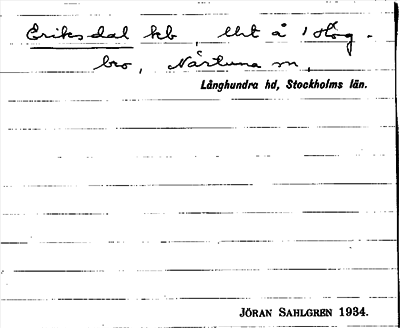 Eriksdal kb, lht å 1 Hög-
bro, Närtuna sn,
Långhundra hd, Stockholms län.
JÖRAN SAHLGREN 1934.